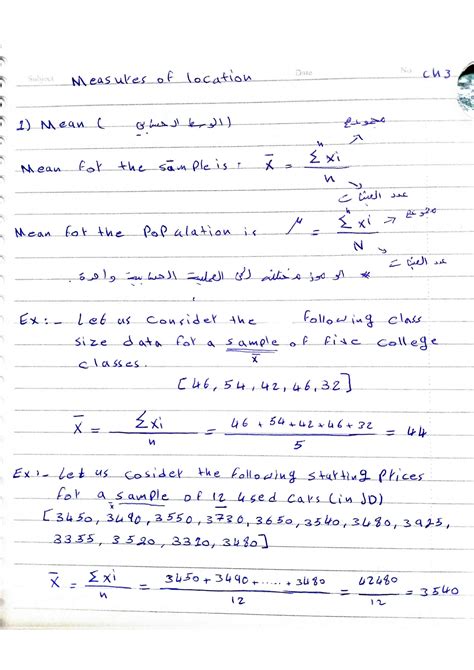 Subject Date No. CH3
Measures of location
1) Mean ( الوسط الحسابي) مجموع
Mean for the sample is: x̄ = Σxi / n
عدد العينات
Mean for the PoPulation is μ = Σxi / N → مجموع
عدد العينات
* الرموز مختلفه لكن العملية الحسابية واحدة.
Ex:- Let us consider the following class
size data for a sample of five college
x̄
classes.
[46, 54, 42, 46, 32]
x̄ = Σxi / n = 46 + 54 + 42 + 46 + 32 / 5 = 44
Ex:- Let us cosider the following starting Prices
for a sample of 12 used cars (in JD)
[3450, 3490, 3550, 3730, 3650, 3540, 3480, 3925,
3355, 3520, 3320, 3480]
x̄ = Σxi / n = 3450 + 3490 + ..... + 3480 / 12 = 42480 / 12 = 3540